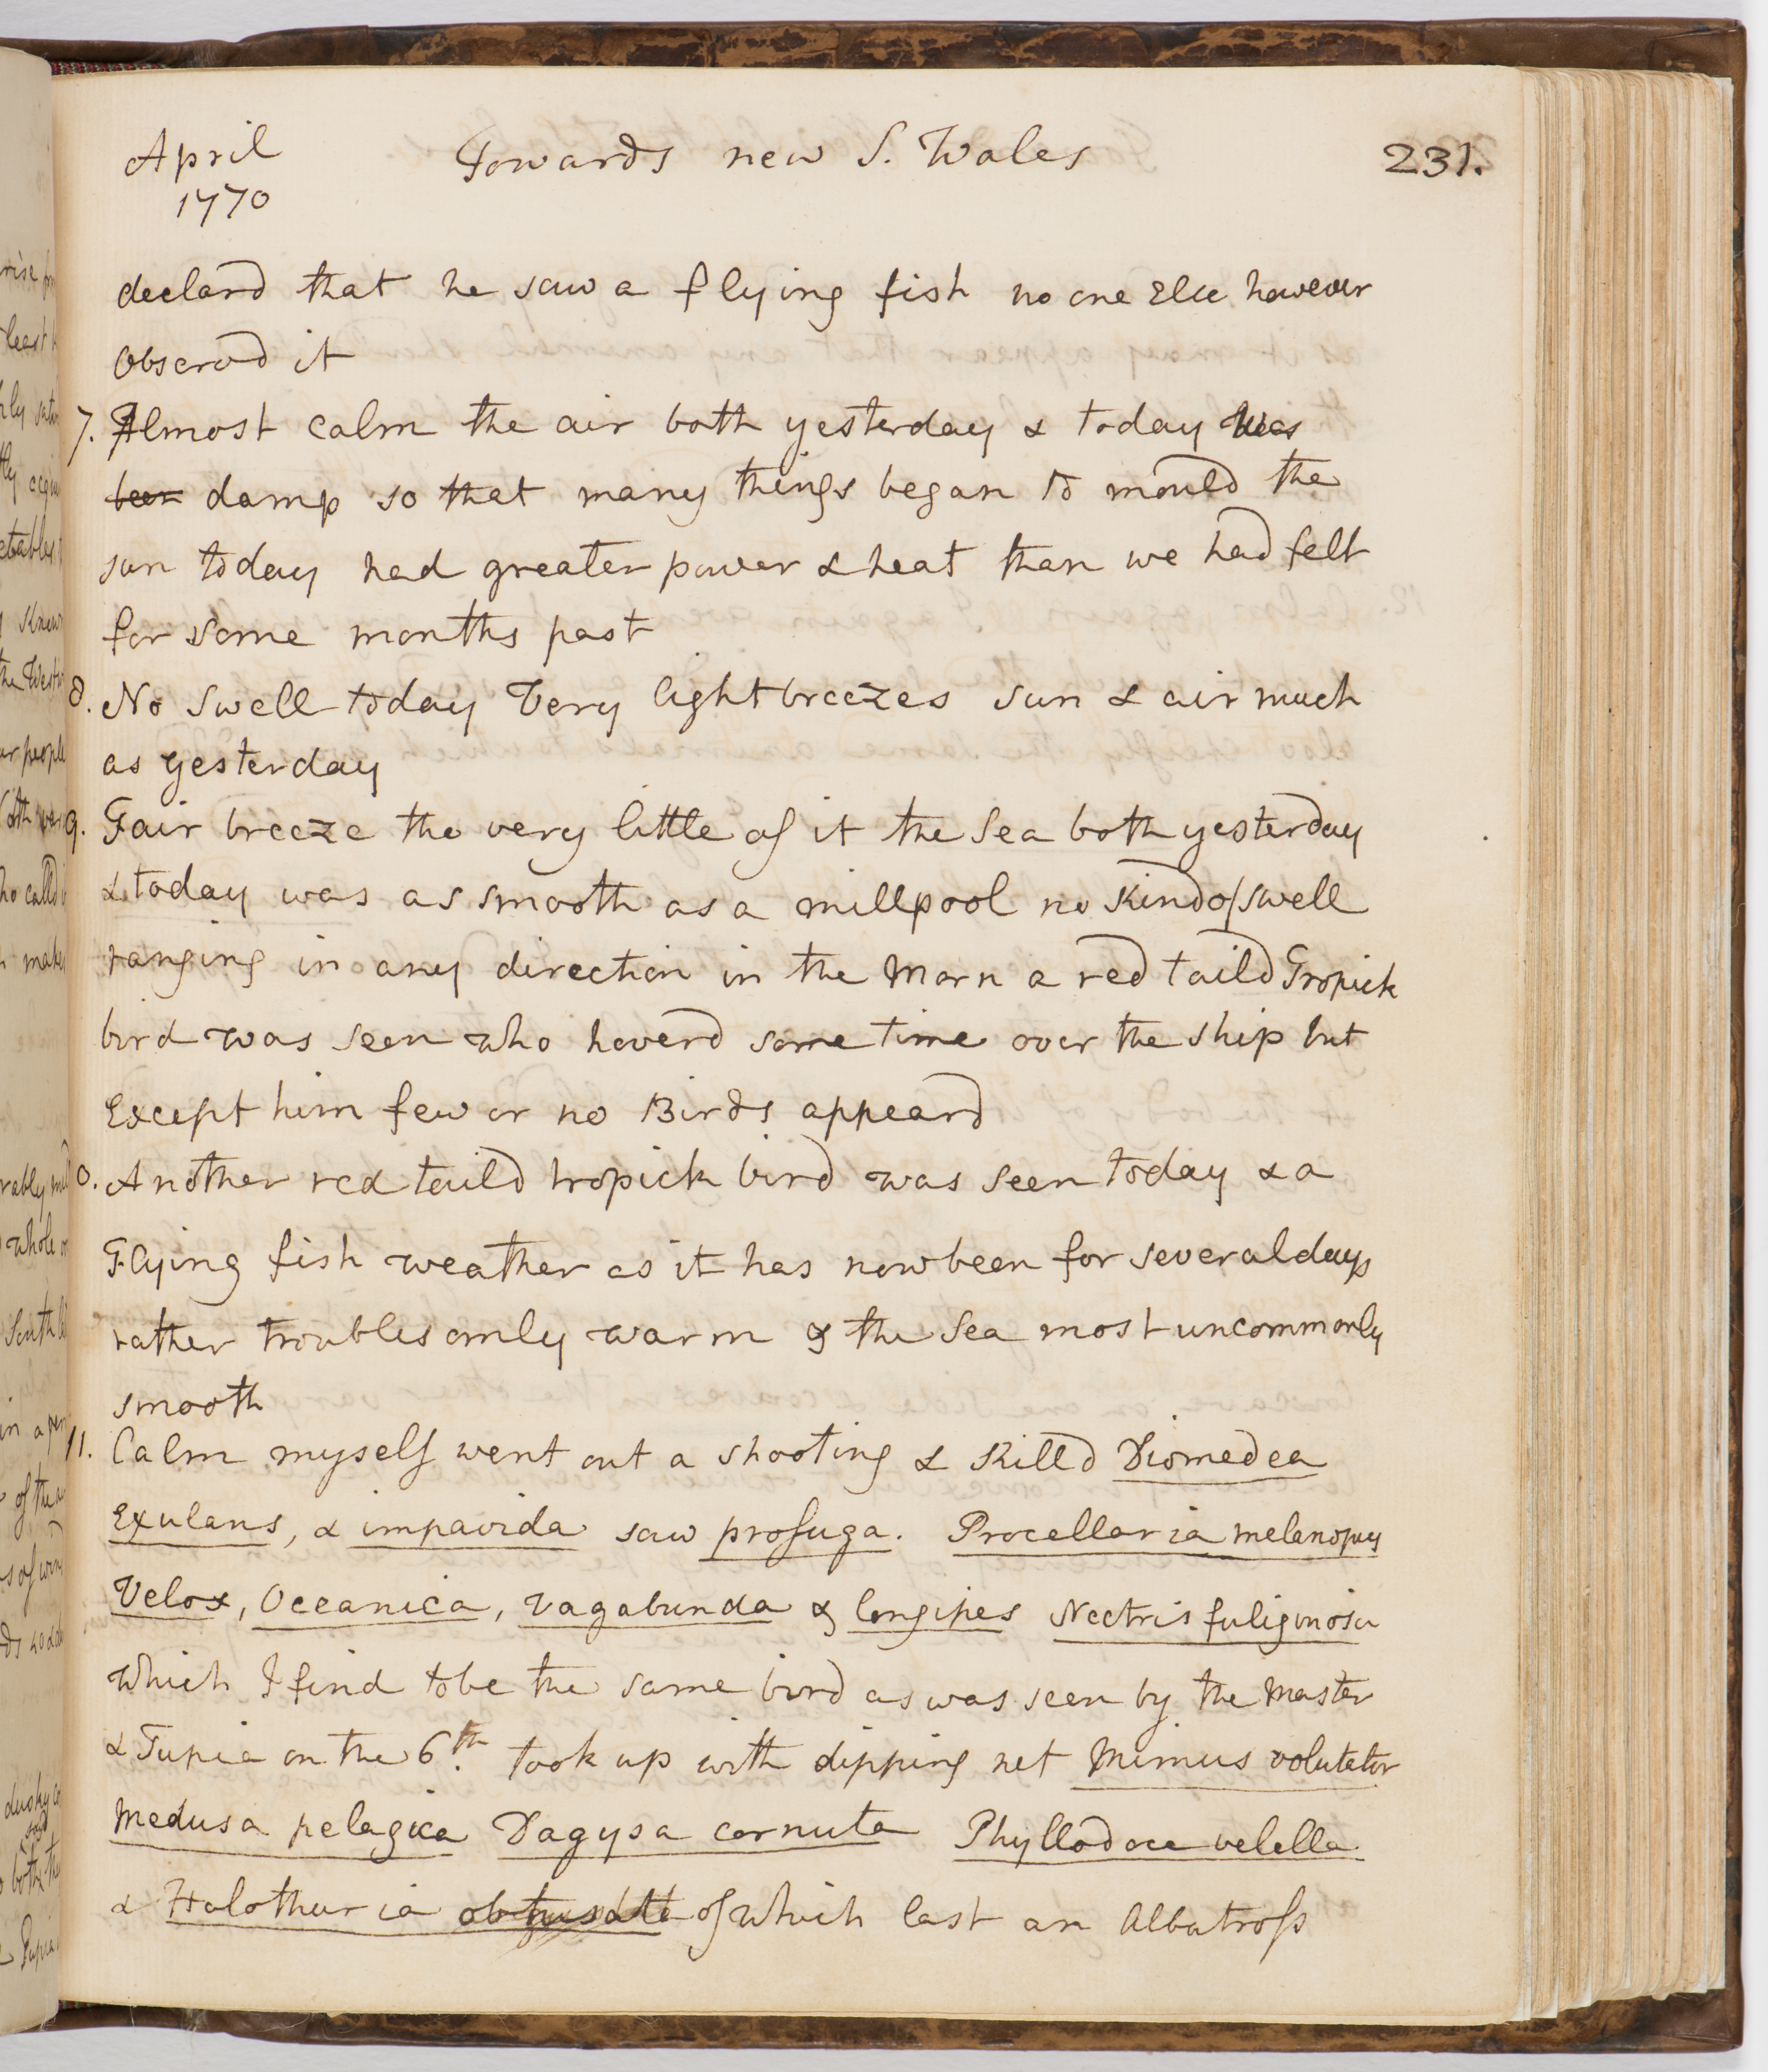 April Towards new S. Wales 231.
1770
declard that he saw a flying fish no one Else however
observd it
7. Almost calm the air both yesterday & today was
been damp so that many things began to mould the
sun today had greater power & heat than we had felt
for some months past
8. No swell today Very light breezes sun & air much
as yesterday
9. Fair breeze tho very little of it the Sea both yesterday
& today was as smooth as a millpool no kind of swell
ranging in any direction in the Morn a red taild Tropick
bird was seen who hoverd some time over the ship but
Except him few or no Birds appeard
0. Another red taild tropick bird was seen today & a
Flying fish weather as it has now been for several days
rather troublesomly warm & the Sea most uncommonly
smooth
11. Calm myself went out a shooting & killd Diomedea
Exulans, & impavida saw profuga. Procellaria melanopus
Velox, Oceanica, vagabunda & longipes Nectris fuliginosa
which I find to be the same bird as was seen by the Master
& Tupia on the 6th. took up with dipping net Mimus volutator
Medusa pelagica Dagysa cornuta Phyllodoce velella
& Holothuria obtusata of which last an Albatross